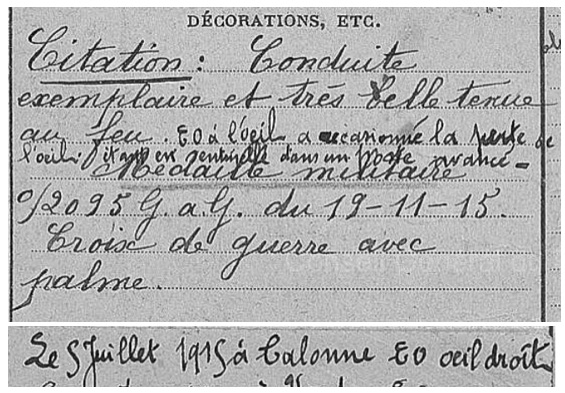 DÉCORATIONS, ETC.
Citation : Conduite
exemplaire et très belle tenue
au feu. EO à l'oeil a occasionné la perte de
l'oeil: étant en sentinelle dans un poste avancé -
Médaille militaire
o/2095 G. a. G. du 19-11-15.
Croix de guerre avec
palme.
Le 5 Juillet 1915 à Calonne EO oeil droit